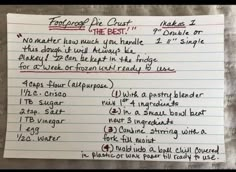 Foolproof Pie Crust Makes 1
"THE BEST!" 9" Double or
"No matter how much you handle 1 8" Single
this dough it will Always be
flakey! It Can be kept in the fridge
for a week or frozen until ready to use.
4 cups flour (all purpose)
1½ c. Crisco (1) With a pastry blender
1 TB sugar mix 1st 4 ingredients
2 tsp. Salt (2) In a small bowl beat
1 TB vinegar next 3 ingredients
1 egg (3) Combine stirring with a
½ c. water fork till moist
(4) Mold into a ball chill covered
in plastic or wax paper till ready to use.